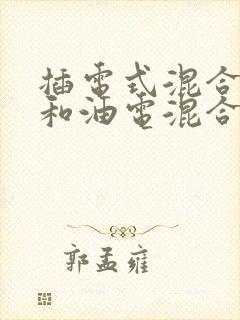 插電式混合
和油電混合
郭孟雍